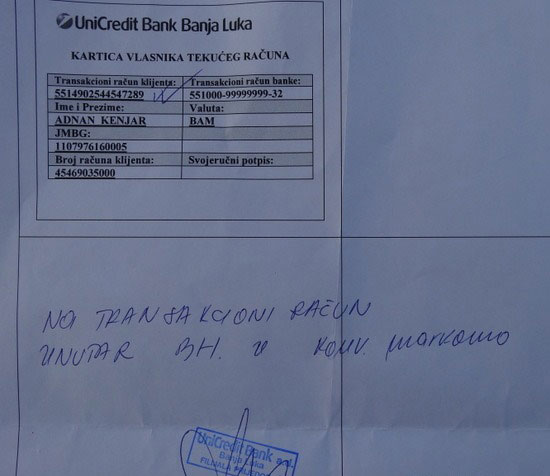 UniCredit Bank Banja Luka
KARTICA VLASNIKA TEKUĆEG RAČUNA
Transakcioni račun klijenta: Transakcioni račun banke:
5514902544547289 551000-99999999-32
Ime i Prezime: Valuta:
ADNAN KENJAR BAM
JMBG:
1107976160005
Broj računa klijenta: Svojeručni potpis:
45469035000
NA TRANSAKCIONI RAČUN
UNUTAR BH. U KONV. markama
UniCredit Bank a.d.
Banja Luka
FILIJALA